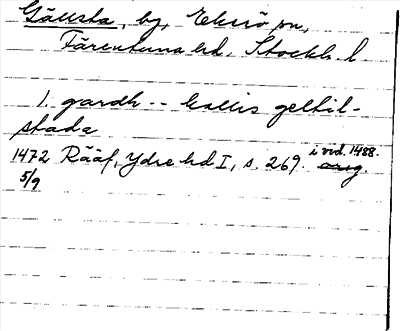 Gällsta, by, Ekerö sn,
Färentuna hd, Stockh. l.
1. gardh -- kallis geltil-
stada
1472 Rääf, Ydre hd I, s. 269. i vid. 1488.
5/9 orig.